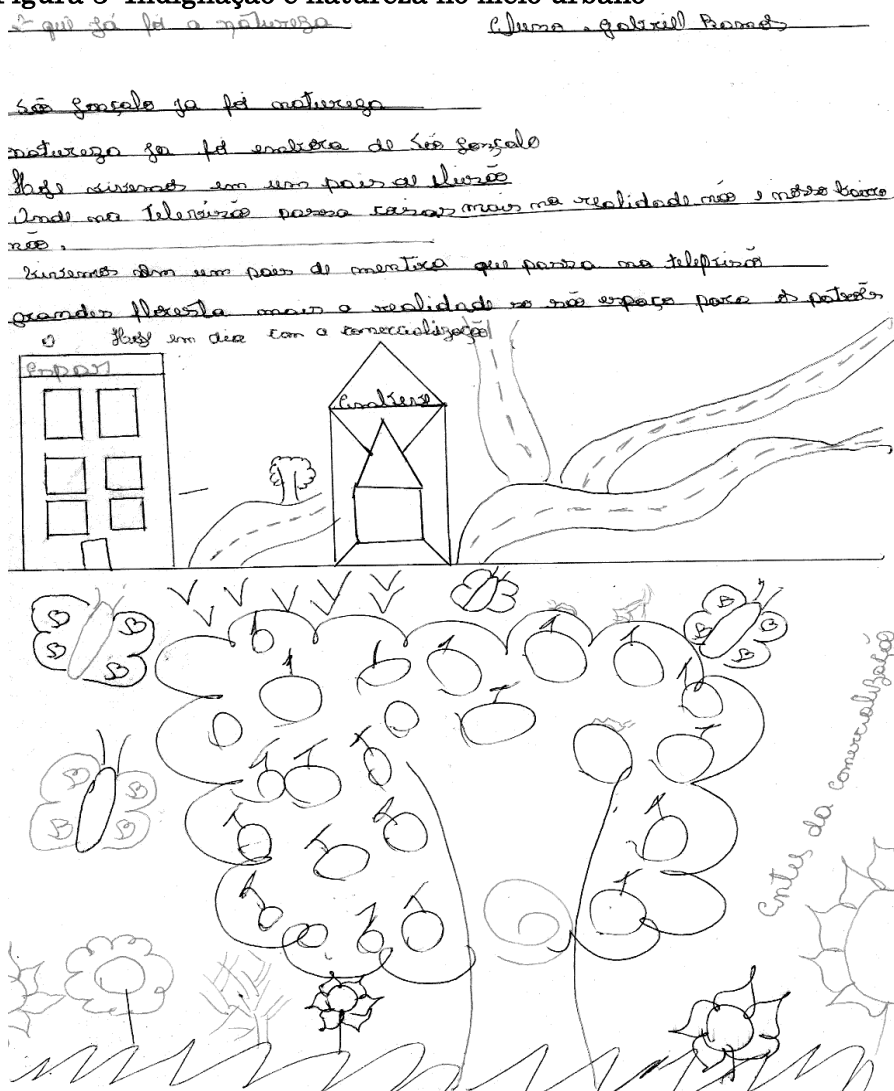 Figura 3- Indignação e natureza no meio urbano
que já foi a natureza
Aluno. gabriell Ramos
São gonçalo ja foi natureza
natureza ja foi embora de São gonçalo
Hoje vivemos em um pais de ilusão
Onde na televisão passa coisas mais na realidade não e nosso bairro
não.
vivemos em um pais de mentira que passa na televisão
grandes floresta mais a realidade so são espaço para os patrões
Hoje em dia com a comercialização
Antes da comercialização